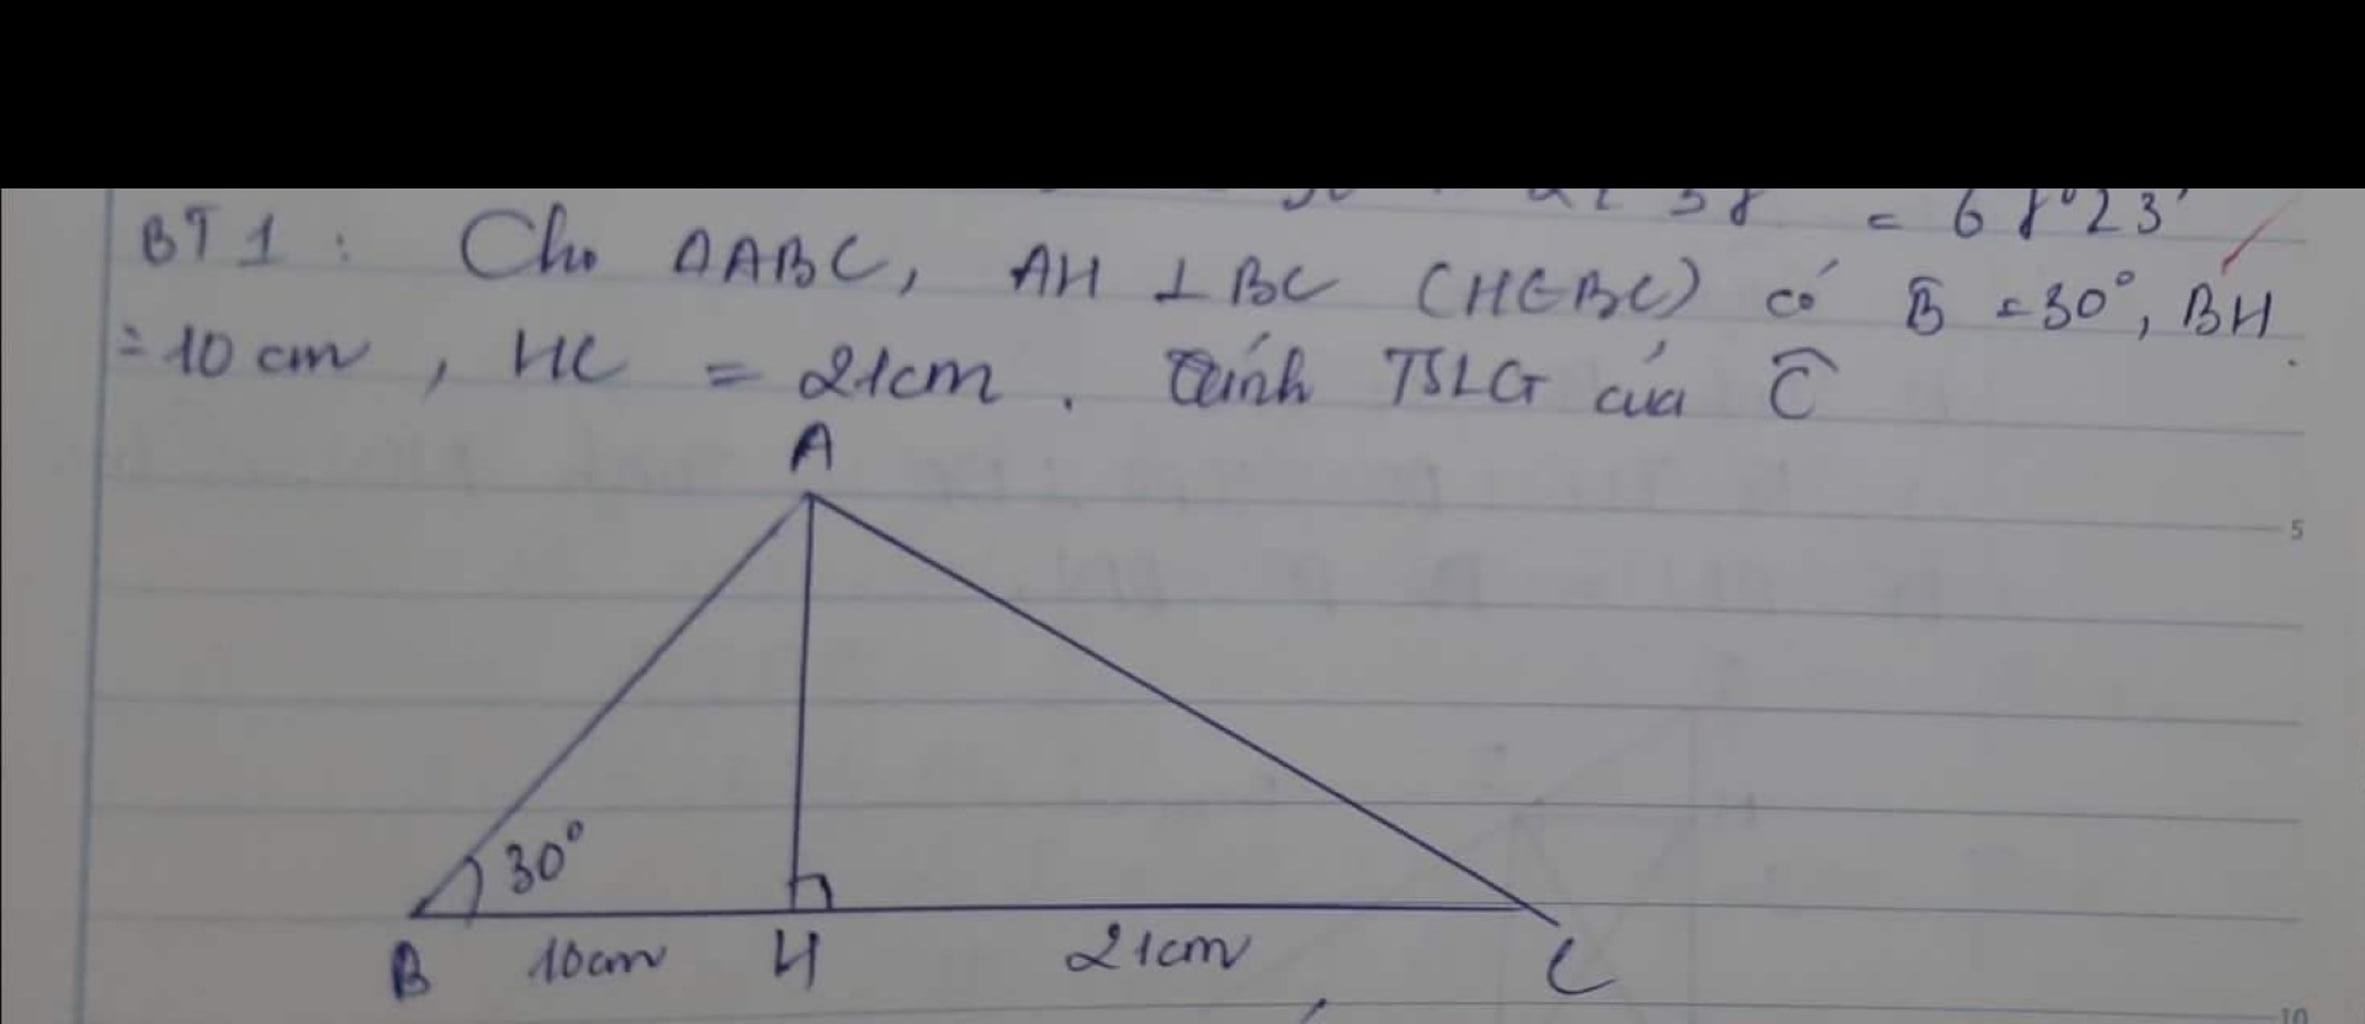 = 6 8°23'
BT 1 : Cho ΔABC, AH ⊥ BC (H∈BC) có B̂ = 30°, BH
= 10 cm, HC = 21cm. Tính TSLG của Ĉ
A
5
30°
B 10cm H 21cm C
10